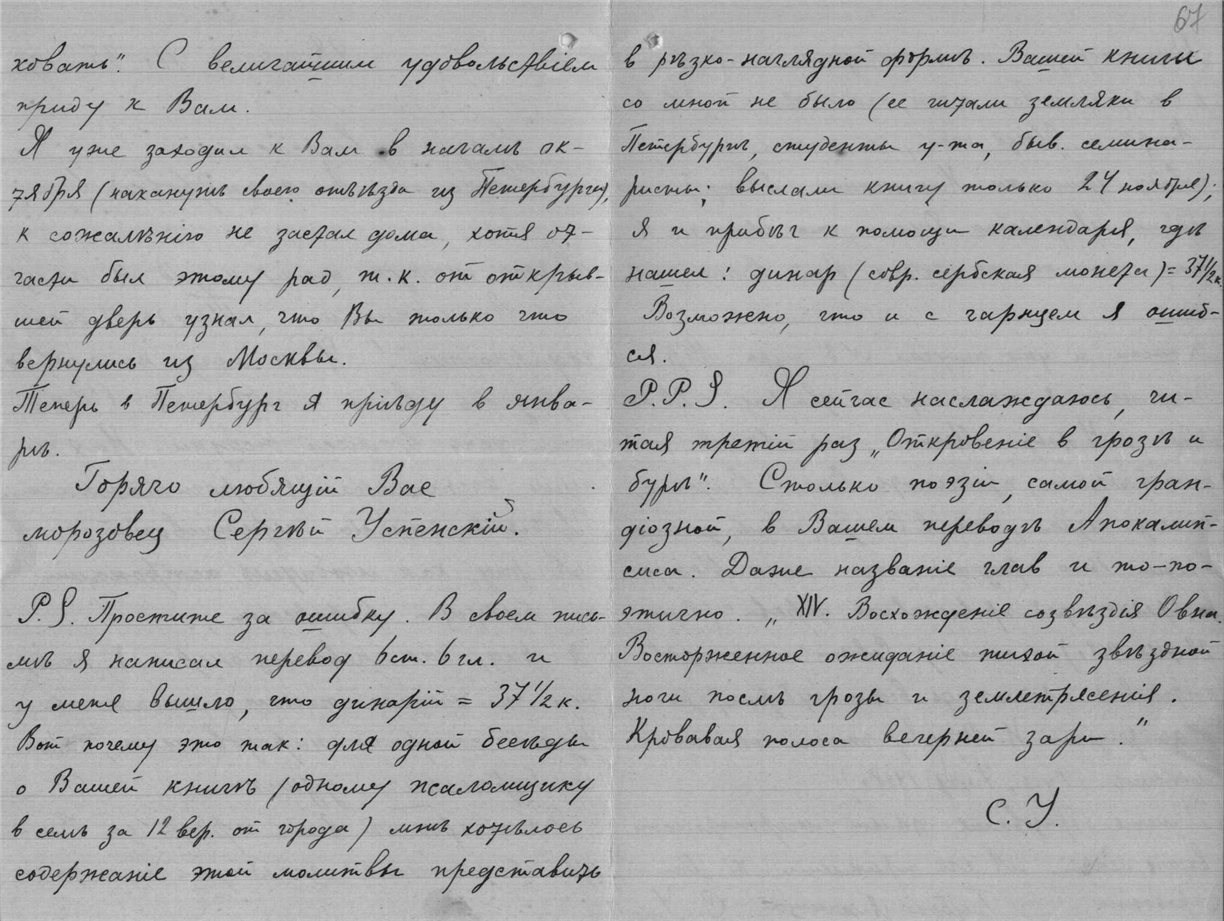 ховать". С величайшим удовольствіем
приду к Вам.
Я уже заходил к Вам в началѣ ок-
тября (наканунѣ своего отъѣзда из Петербурга),
к сожалѣнію не застал дома, хотя от-
части был этому рад, т.к. от открыв-
шей дверь узнал, что Вы только что
вернулись из Москвы.
Теперь в Петербург я пріѣду в янва-
рѣ.
Горячо любящій Вас
морозовец Сергѣй Успенскій.
P.S. Простите за ошибку. В своем пись-
мѣ я написал перевод 6 ст. 6 гл. и
у меня вышло, что динарій = 37 1/2 к.
Вот почему это так: для одной бесѣды
о Вашей книгѣ (одному псаломщику
в селѣ за 12 вер. от города) мнѣ хотѣлось
содержаніе этой молитвы представить
67
в рѣзко-наглядной формѣ. Вашей книги
со мной не было (ее читали земляки в
Петербургѣ, студенты у-та, быв. семина-
ристы; выслали книгу только 24 ноября);
я и прибѣг к помощи календаря, гдѣ
нашел: динар (совр. сербская монета) = 37 1/2 к.
Возможно, что и с гарнцем я ошиб-
ся.
P.P.S. Я сейчас наслаждаюсь, чи-
тая третій раз „Откровеніе в грозѣ и
бурѣ". Столько поэзіи, самой гран-
діозной, в Вашем переводѣ Апокалип-
сиса. Даже названіе глав и то-по-
этично. „XIV. Восхожденіе созвѣздія Овна.
Восторженное ожиданіе тихой звѣздной
ночи послѣ грозы и землетрясенія.
Кровавая полоса вечерней зари".
С. У.